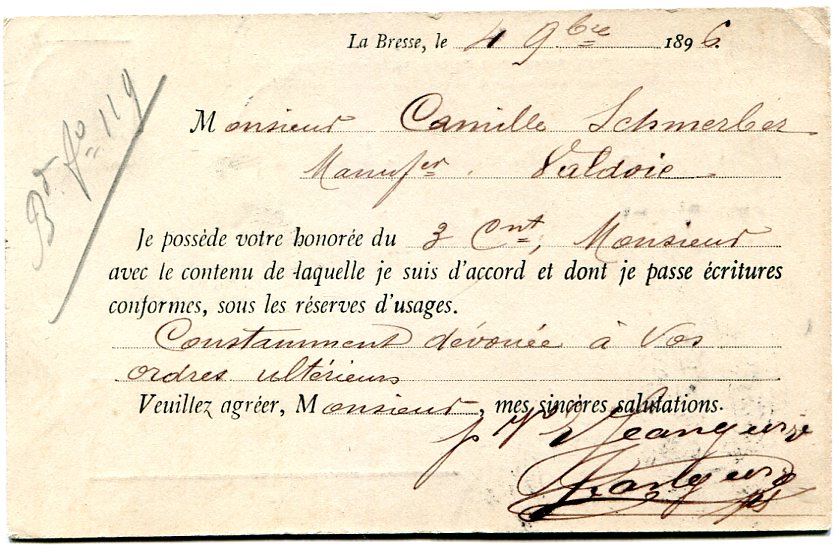 La Bresse, le 4 9bre 1896.
Monsieur Camille Schmerber
Manufer. Valdoie.
Bd. fo 119
Je possède votre honorée du 3 Cnt, Monsieur
avec le contenu de laquelle je suis d'accord et dont je passe écritures
conformes, sous les réserves d'usages.
Constamment dévouée à Vos
ordres ultérieurs
Veuillez agréer, Monsieur, mes sincères salutations.